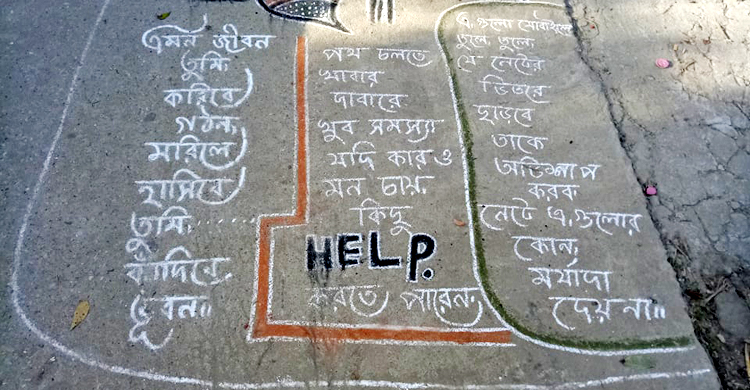 এমন জীবন
তুমি
করিবে
গঠন
মরিলে
হাসিবে
তুমি......
কাঁদিবে
ভূবন॥
পথ চলতে
খাবার
দাবারে
খুব সমস্যা
যদি কারও
মন চায়
কিছু
HELP.
করতে পারেন
এ গুলো মোবাইলে
তুলে, তুলে
যে নেটের
ভিতরে
ছাড়বে
তাকে
অভিশাপ
করব
নেটে এ গুলোর
কোন
মর্যাদা
দেয় না॥